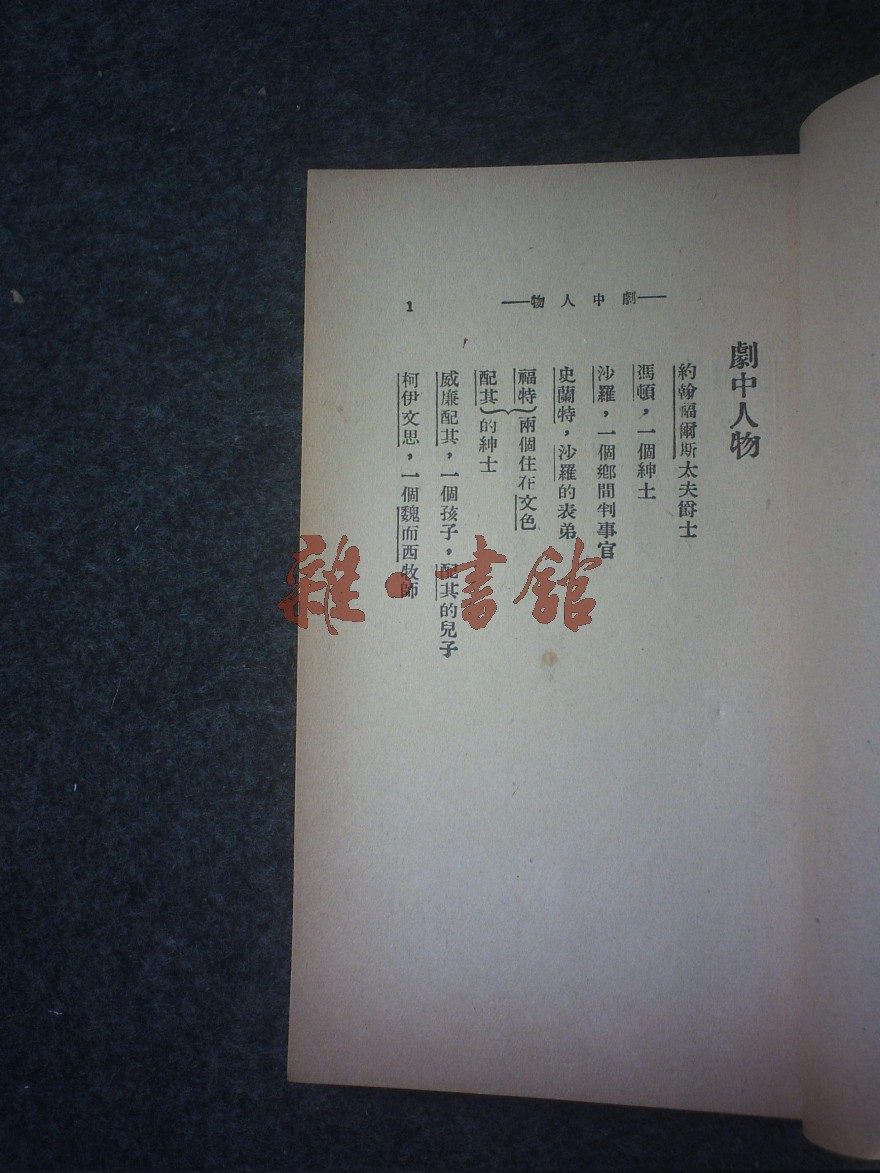 —劇中人物—
1
劇中人物
約翰福爾斯太夫爵士
馮頓，一個紳士
沙羅，一個鄉間判事官
史蘭特，沙羅的表弟
福特}兩個住在文色
配其}的紳士
威廉配其，一個孩子，配其的兒子
柯伊文思，一個魏而西牧師
雜·書館